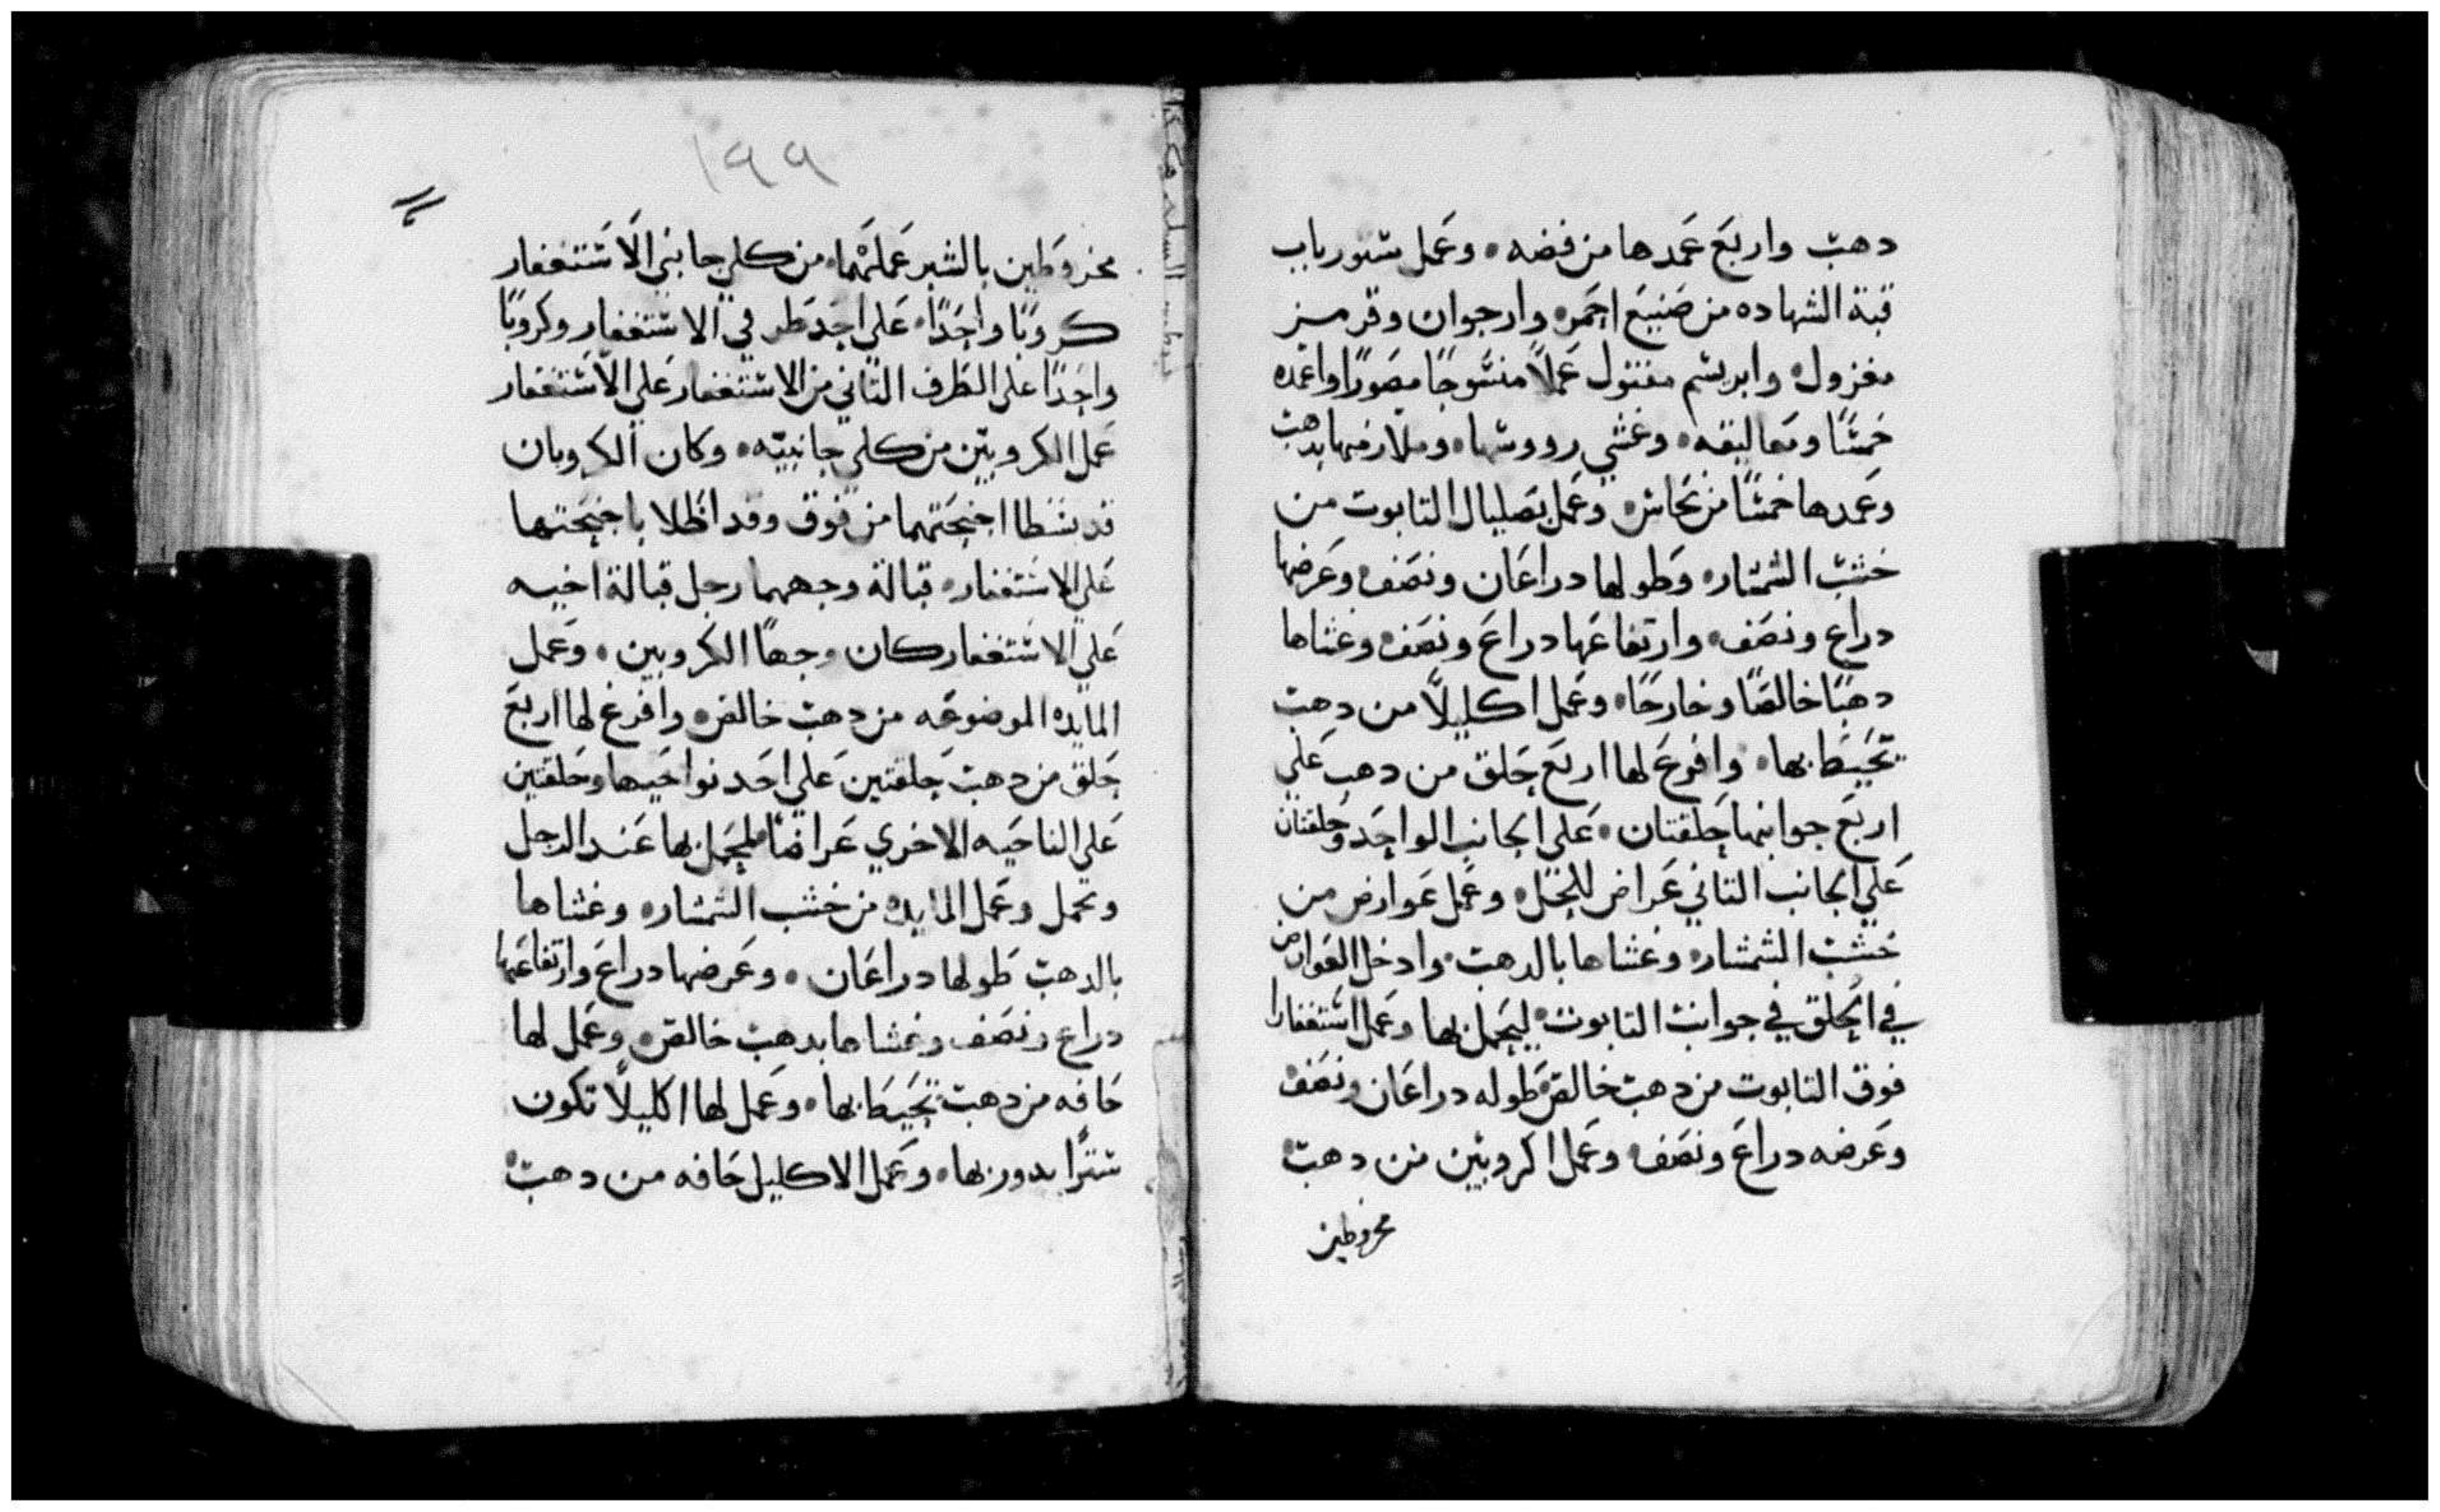 دهب واربع عمدها من فضه، وعمل ستور باب
قبة الشهاده من صنيع احمر، وارجوان وقرمز
مغزول، وابريسم مفتول عملاً منسوجًا مصورًا واعمده
خمسًا ومعاليقه، وغشي رووسها، وملازمها بدهب
وعمدها خمسًا من نحاس، وعمل بصليال التابوت من
خشب الشمشار، وطولها دراعان ونصف، وعرضها
دراع ونصف، وارتفاعها دراع ونصف، وغشاها
دهبًا خالصًا وخارجًا، وعمل اكليلاً من دهب
تحيط بها، وافرغ لها اربع حلق من دهب علي
اربع جوانبها حلقتان، علي الجانب الواحد وحلقتان
علي الجانب التاني عراض للحمل، وعمل عوارض من
خشب الشمشار، وغشاها بالدهب، وادخل العوارض
في الحلق في جوانب التابوت، ليحمل بها وعمل استغفارا
فوق التابوت من دهب خالص، طوله دراعان ونصف
وعرضه دراع ونصف، وعمل اكروبين من دهب
مخروطين
١٩٩
مخروطين بالشبر عملهما، من كلي جانبي الاستغفار
كروبًا واحدًا، علي احد طر في الاستغفار وكروبًا
واحدًا علي الطرف التاني من الاستغفار علي الاستغفار
عمل الكروبين من كلي جانبيه، وكان الكروبان
قد بسطا اجنحتهما من فوق وقد اظلا باجنحتها
علي الاستغفار، قبالة وجههما رجل قبالة اخيه
علي الاستغفار كان وجها الكروبين، وعمل
المايده الموضوعه من دهب خالص، وافرغ لها اربع
حلق من دهب حلقتين علي احد نواحيها وحلقتين
علي الناحيه الاخري عراضًا ليحمل بها عند الرجل
وتحمل وعمل المايده من خشب الشمشار، وغشاها
بالدهب طولها دراعان، وعرضها دراع وارتفاعها
دراع ونصف وغشاها بدهب خالص، وعمل لها
حافه من دهب تحيط بها، وعمل لها اكليلاً تكون
سترًا يدور بها، وعمل الاكليل حافه من دهب